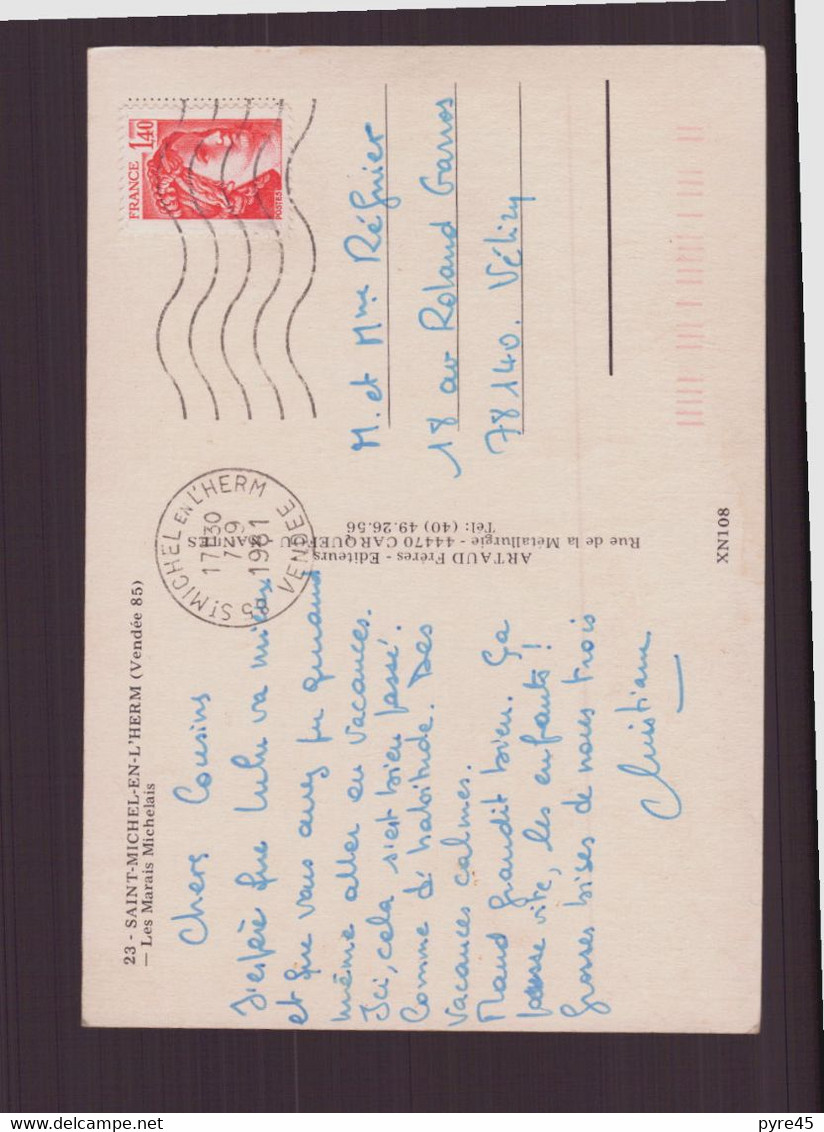 23 - SAINT-MICHEL-EN-L'HERM (Vendée 85)
— Les Marais Michelais
Chers Cousins
J'espère que Lulu va mieux
et que vous avez pu quand
même aller en vacances.
Ici, cela s'est bien passé.
Comme d'habitude. Des
vacances calmes.
Maud grandit bien. Ça
passe vite, les enfants !
Grosses bises de nous trois
Christiane
ARTAUD Frères - Editeurs
Rue de la Métallurgie - 44470 CARQUEFOU NANTES
Tél: (40) 49.26.56
XN108
85 ST MICHEL EN L'HERM
17H30
7-9
1981
VENDEE
FRANCE
1,40
POSTES
M. et Mme Régnier
18 av Roland Garros
78140. Vélizy
pyre45